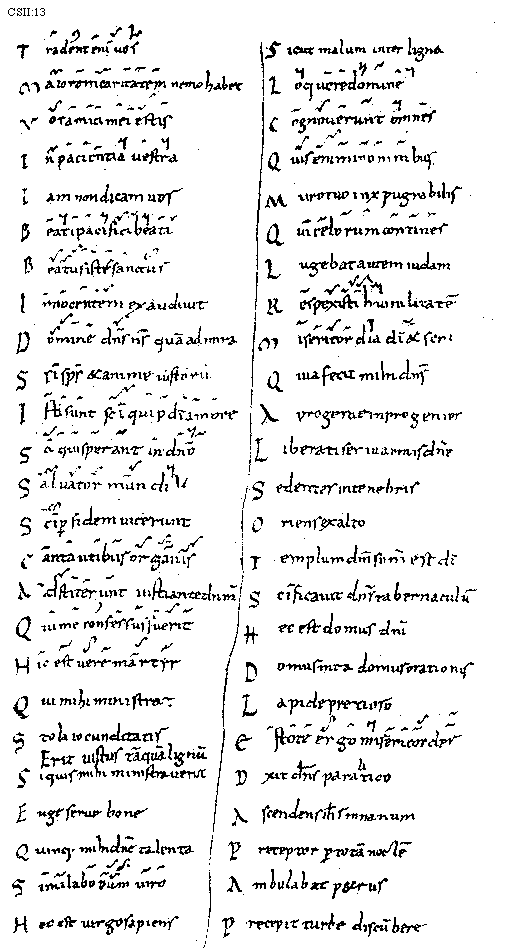 CSII:13
Tradent eni vos
Maiorem caritatem nemo habet
Vos amici mei estis
In pacientia vestra
Iam non dicam vos
Beati pacifici beati
Beatus iste sanctus
Innocentem exaudiut
Domine dns ns quā admira
Sci sps & anime iustorū
Isti sunt sci qui p di amore
Sci qui sperant in dno
Salvator mundi
Sci p fidem vicerunt
Cantantibus organis
Adstiterunt iusti ante dnm
Qui me confessus fuerit
Hic est vere martyr
Qui mihi ministrat
Stola iocunditatis
Erit iustus tāquā lignū
Si quis mihi ministraverit
Euge serve bone
Quinq; mihi dne talenta
Similabo eum viro
Hec est virgo sapiens
Sicut malum inter ligna
Loquere domine
Cognoverunt omnes
Quis enim in omnibus
Muro tuo inexpugnabilis
Qui celorum contines
Lugebat autem iudam
Respexisti humilitatē
Misericordia di & seri
Quia fecit mihi dns
A progenie in progenies
Liberati serviamus dne
Sedentes in tenebris
Oriens ex alto
Templum dni scm est di
Scificavit dns tabernaculū
Hec est domus dni
Domus mea domus orationis
Lapide pretioso
Estote ergo misericordes
Dixit dns paralitico
Ascendens ihs in navim
Preceptor p totā noctē
Ambulabat petrus
Precepit turbe discūbere